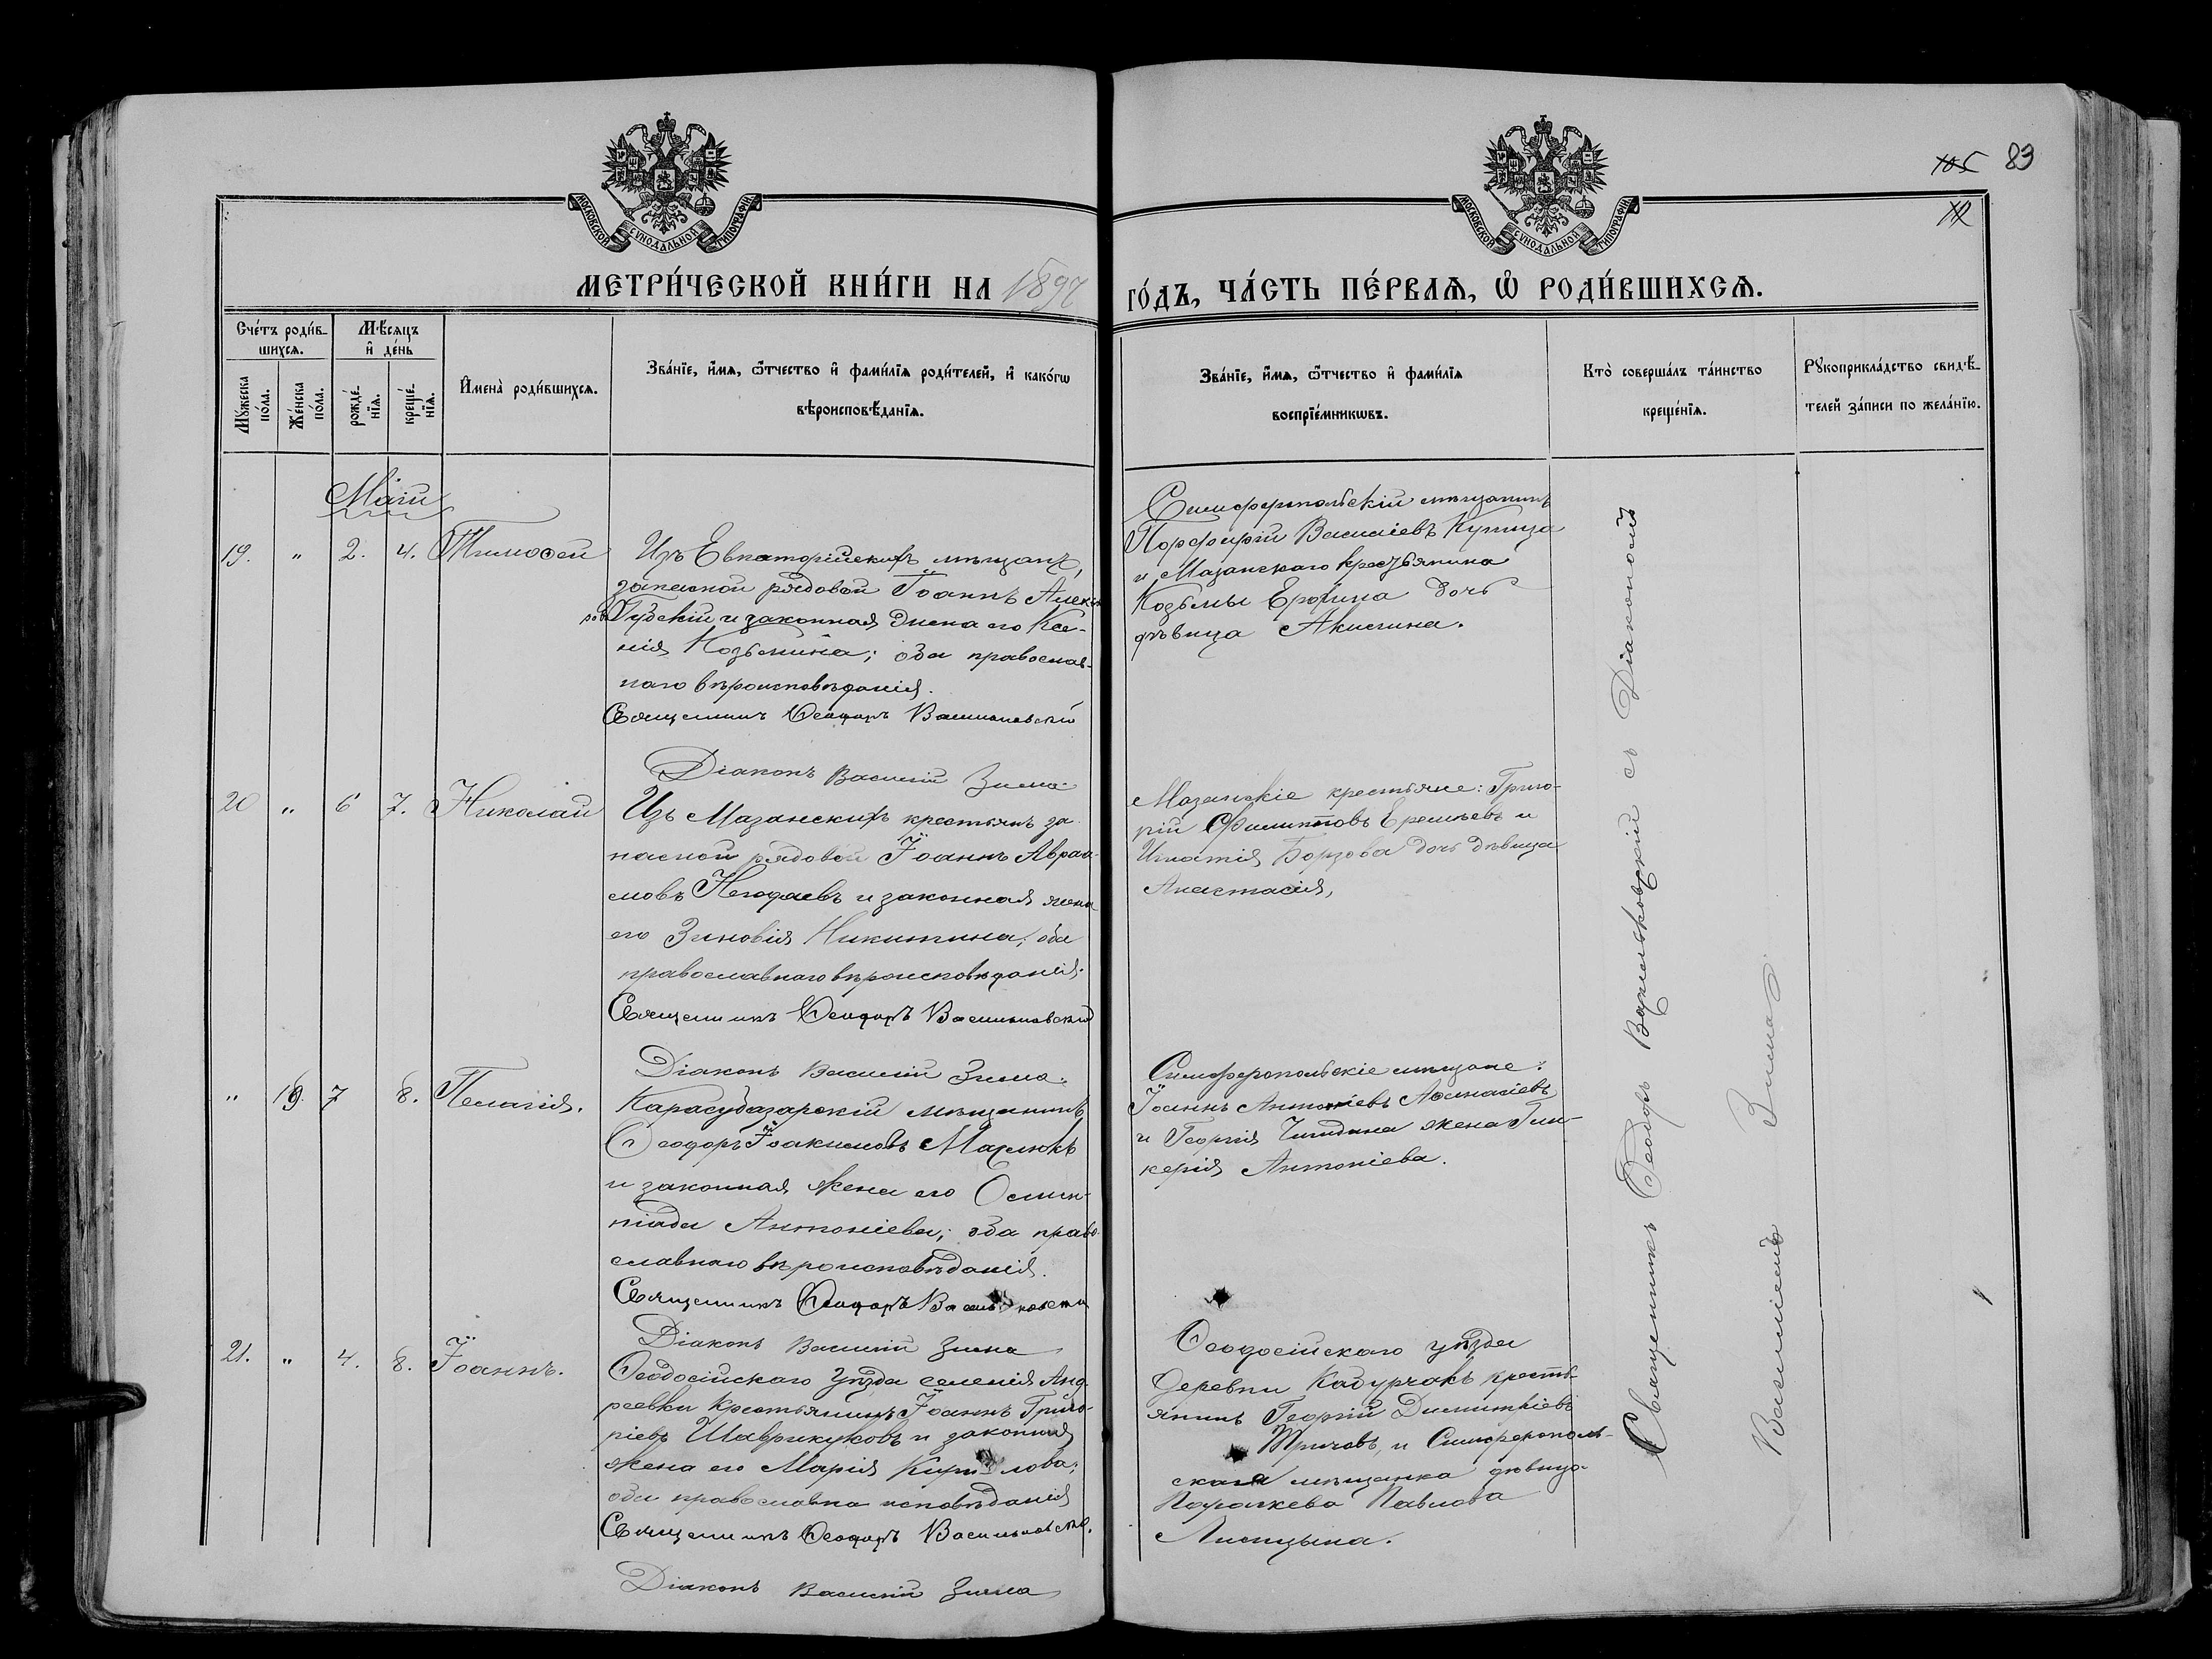 105 83
112
МОСКОВСКОЙ СѴНОДАЛЬНОЙ ТИПОГРАФІИ
МОСКОВСКОЙ СѴНОДАЛЬНОЙ ТИПОГРАФІИ
МЕТРИ́ЧЕСКОЙ КНИ́ГИ НА 1897 ГО́ДЪ, ЧА́СТЬ ПЕ́РВАѦ, Ѡ҆ РОДИ́ВШИХСѦ.
Сче́тъ роди́в-
шихсѧ.
Мꙋ́жеска
по́ла.
Же́нска
по́ла.
Мѣ́сѧцъ
и҆ де́нь
рожде́-
нїѧ.
креще́-
нїѧ.
И҆мена̀ роди́вшихсѧ.
Зва́нїе, и҆́мѧ, ѻ҆́тчество и҆ фами́лїѧ роди́телей, и҆ како́гѡ
вѣроисповѣ́данїѧ.
Зва́нїе, и҆́мѧ, ѻ҆́тчество и҆ фами́лїѧ
воспрїе́мникѡвъ.
Кто̀ соверша́лъ та́инство
креще́нїѧ.
Рꙋкоприкла́дство свидѣ́-
телей за́писи по жела́нїю.
Маій
19. " 2. 4. Тимоѳей
Изъ Евпаторійскихъ мѣщанъ,
запасной рядовой Іоаннъ Алек
ров Гудскій и законная жена его Ксе-
нія Козьмина; оба православ-
наго вѣроисповѣданія.
Священникъ Ѳеодоръ Васильковскій
Діаконъ Василій Зима
Симферопольскій мѣщанинъ
Порфирій Василіевъ Купица
и Мазанскаго крестьянина
Козьмы Ерохина дочь
дѣвица Акилина.
20 " 6 7. Николай
Изъ Мазанскихъ крестьянъ за
пасной рядовой Іоаннъ Авраа-
мовъ Негодяевъ и законная жена
его Зиновія Никитина; оба
православнаго вѣроисповѣданія.
Священникъ Ѳеодоръ Васильковскій
Діаконъ Василій Зима.
Мазанскіе крестьяне: Григо-
рій Филипповъ Еремѣевъ и
Игнатія Борзова дочь дѣвица
Анастасія,
" 19. 7 8. Пелагія.
Карасубазарскій мѣщанинъ
Ѳеодоръ Іоакимовъ Марлюкъ
и законная жена его Олим-
піада Антоніева; оба право-
славнаго вѣроисповѣданія.
Священникъ Ѳеодоръ Васильковскій
Діаконъ Василій Зима
Симферопольскіе мѣщане:
Іоаннъ Антоніевъ Аѳанасіевъ
и Георгія жена Гли-
керія Антоніева.
21. " 4. 8. Іоаннъ.
Ѳеодосійскаго уѣзда селенія Анд-
реевки крестьянинъ Іоаннъ Григо-
ріевъ Шаврикуковъ и законная
жена его Марія Кириллова;
оба православна исповѣданія
Священникъ Ѳеодоръ Васильковскій.
Діаконъ Василій Зима
Ѳеодосійскаго уѣзда
деревни Кабурчакъ кресть-
янинъ Георгій Димитріевъ
и Симферополь-
ская мѣщанка дѣвица
Параскева Павлова
Лисицына.
Священникъ Ѳеодоръ Васильковскій съ Діакономъ
Василіемъ Зима